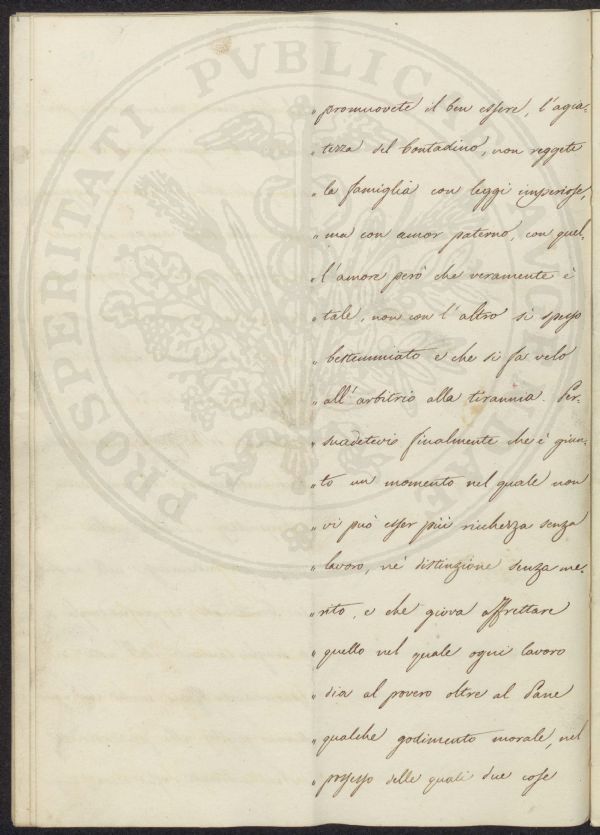 PROSPERITATI PVBLICAE AVGENDAE
„ promuovete il ben essere, l'agia-
„ tezza del Contadino, non reggete
„ la famiglia con leggi imperiose,
„ ma con amor paterno, con quel-
„ l'amore però che veramente è
„ tale, non con l'altro si spesso
„ bestemmiato e che si fa velo
„ all'arbitrio alla tirannia. Per-
„ suadetevi finalmente che è giun-
„ to un momento nel quale non
„ vi può esser più ricchezza senza
„ lavoro, nè distinzione senza me-
„ rito, e che giova affrettare
„ quello nel quale ogni lavoro
„ dia al povero oltre al Pane
„ qualche godimento morale, nel
„ possesso delle quali due cose